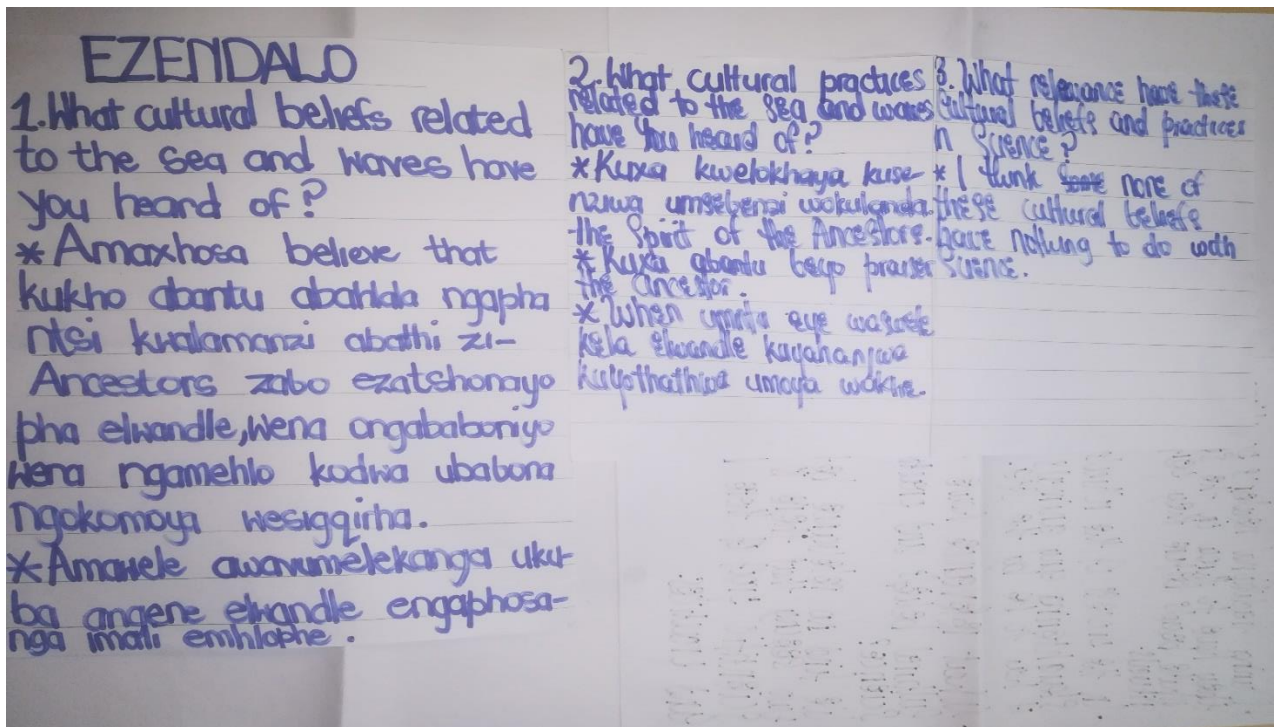 EZENDALO
1. What cultural beliefs related
to the sea and waves have
you heard of?
* Amaxhosa believe that
kukho abantu abahlala ngapha
ntsi kwalamanzi abathi zi-
Ancestors zabo ezatshonayo
pha elwandle, wena ongababoniyo
wena ngamehlo kodwa ubabona
ngokomoya wesigqirha.
* Amawele awavumelekanga uku-
ba angene elwandle engaphosa-
nga imali emhlophe.
2. What cultural practices
related to the sea and waves
have you heard of?
* Kuxa kwelokhaya kuse
nziwa umsebenzi wokulanda
the Spirit of the Ancestors.
* Kuxa abantu beyo praiser
the ancestor.
* When umntu eye
kela elwandle kuyahanjwa
kuyothathwa umoya wakhe.
3. What relevance have these
cultural beliefs and practices
n Science?
* I think none of
these cultural beliefs
have nothing to do with
Science.